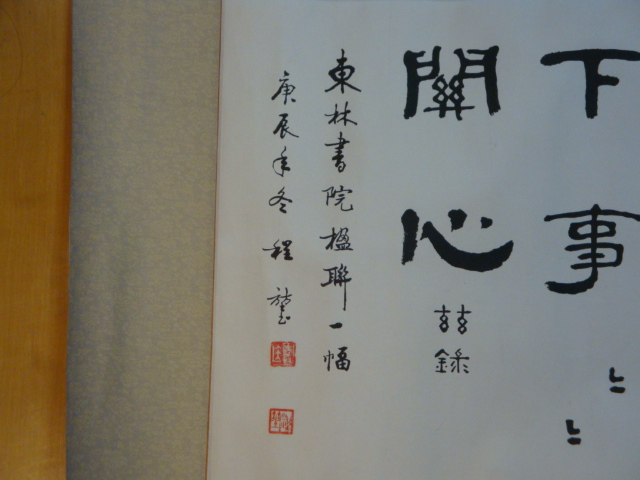 下事
關心
玆錄
東林書院楹聯一幅
庚辰年冬程